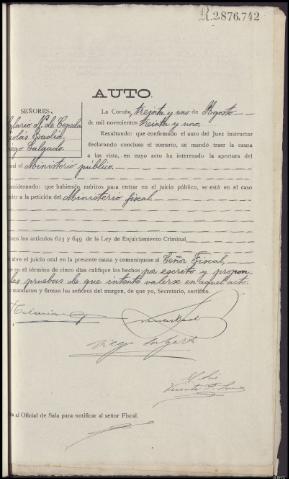 R.2.876.742
AUTO
SEÑORES.
La Coruña, treinta y uno de Agosto
de mil novecientos treinta y uno
Resultando: que confirmado el auto del Juez instructor
declarando concluso el sumario, se mandó traer la causa
a las vista, en cuyo acto ha interesado la apertura del
el Ministerio público
onsiderando: que habiendo méritos para entrar en el juicio público, se está en el caso
a la petición del Ministerio fiscal
os los artículos 623 y 649 de la Ley de Enjuiciamiento Criminal
el juicio oral en la presente causa y comuníquese al Señor Fiscal,
el término de cinco días califique los hechos por escrito y propon
las pruebas de que intente valerse en aquel acto.
mandaron y firman los señores del margen, de que yo, Secretario, certifico.
Diego Salgado
al Oficial de Sala para notificar al señor Fiscal.